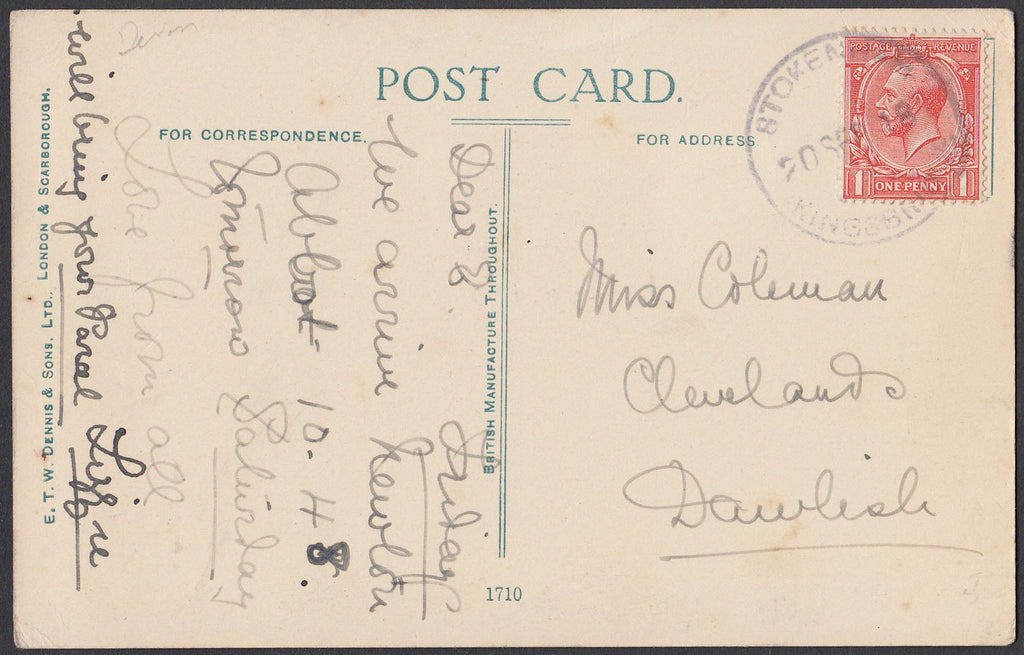 Devon
POST CARD.
FOR CORRESPONDENCE.
FOR ADDRESS.
POSTAGE REVENUE
1 ONE PENNY 1
STOKEN
20 SE
KINGSBRI
Miss Coleman
Clevelands
Dawlish
Dear E. Friday
We arrive Newton
Abbot 10.48.
Tomorrow Saturday
Love from all
Lizzie
will bring your Parcel
BRITISH MANUFACTURE THROUGHOUT.
E. T. W. DENNIS & SONS, LTD., LONDON & SCARBOROUGH.
1710